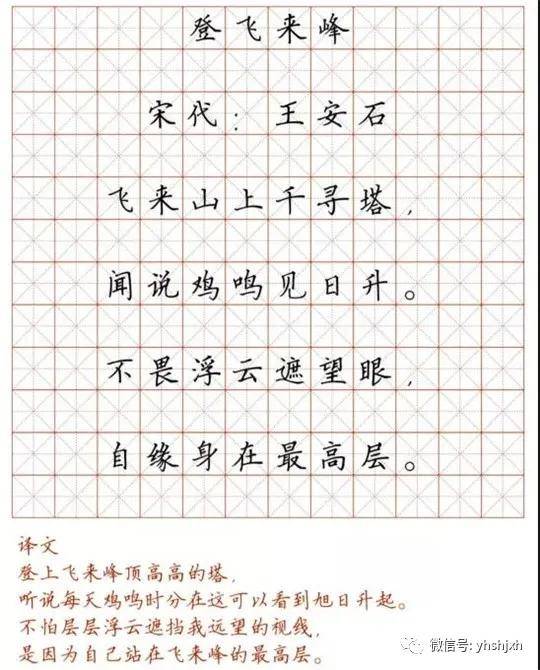 登飞来峰
宋代：王安石
飞来山上千寻塔，
闻说鸡鸣见日升。
不畏浮云遮望眼，
自缘身在最高层。
译文
登上飞来峰顶高高的塔，
听说每天鸡鸣时分在这可以看到旭日升起。
不怕层层浮云遮挡我远望的视线，
是因为自己站在飞来峰的最高层。
微信号: yhshjxh